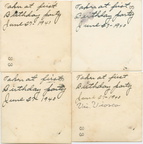 Taken at first
Birthday party
June 5th 1940
Taken at first
Birthday party
June 5th 1940
Taken at first
Birthday party
June 5th 1940
Taken at first
Birthday party
June 5th 1940